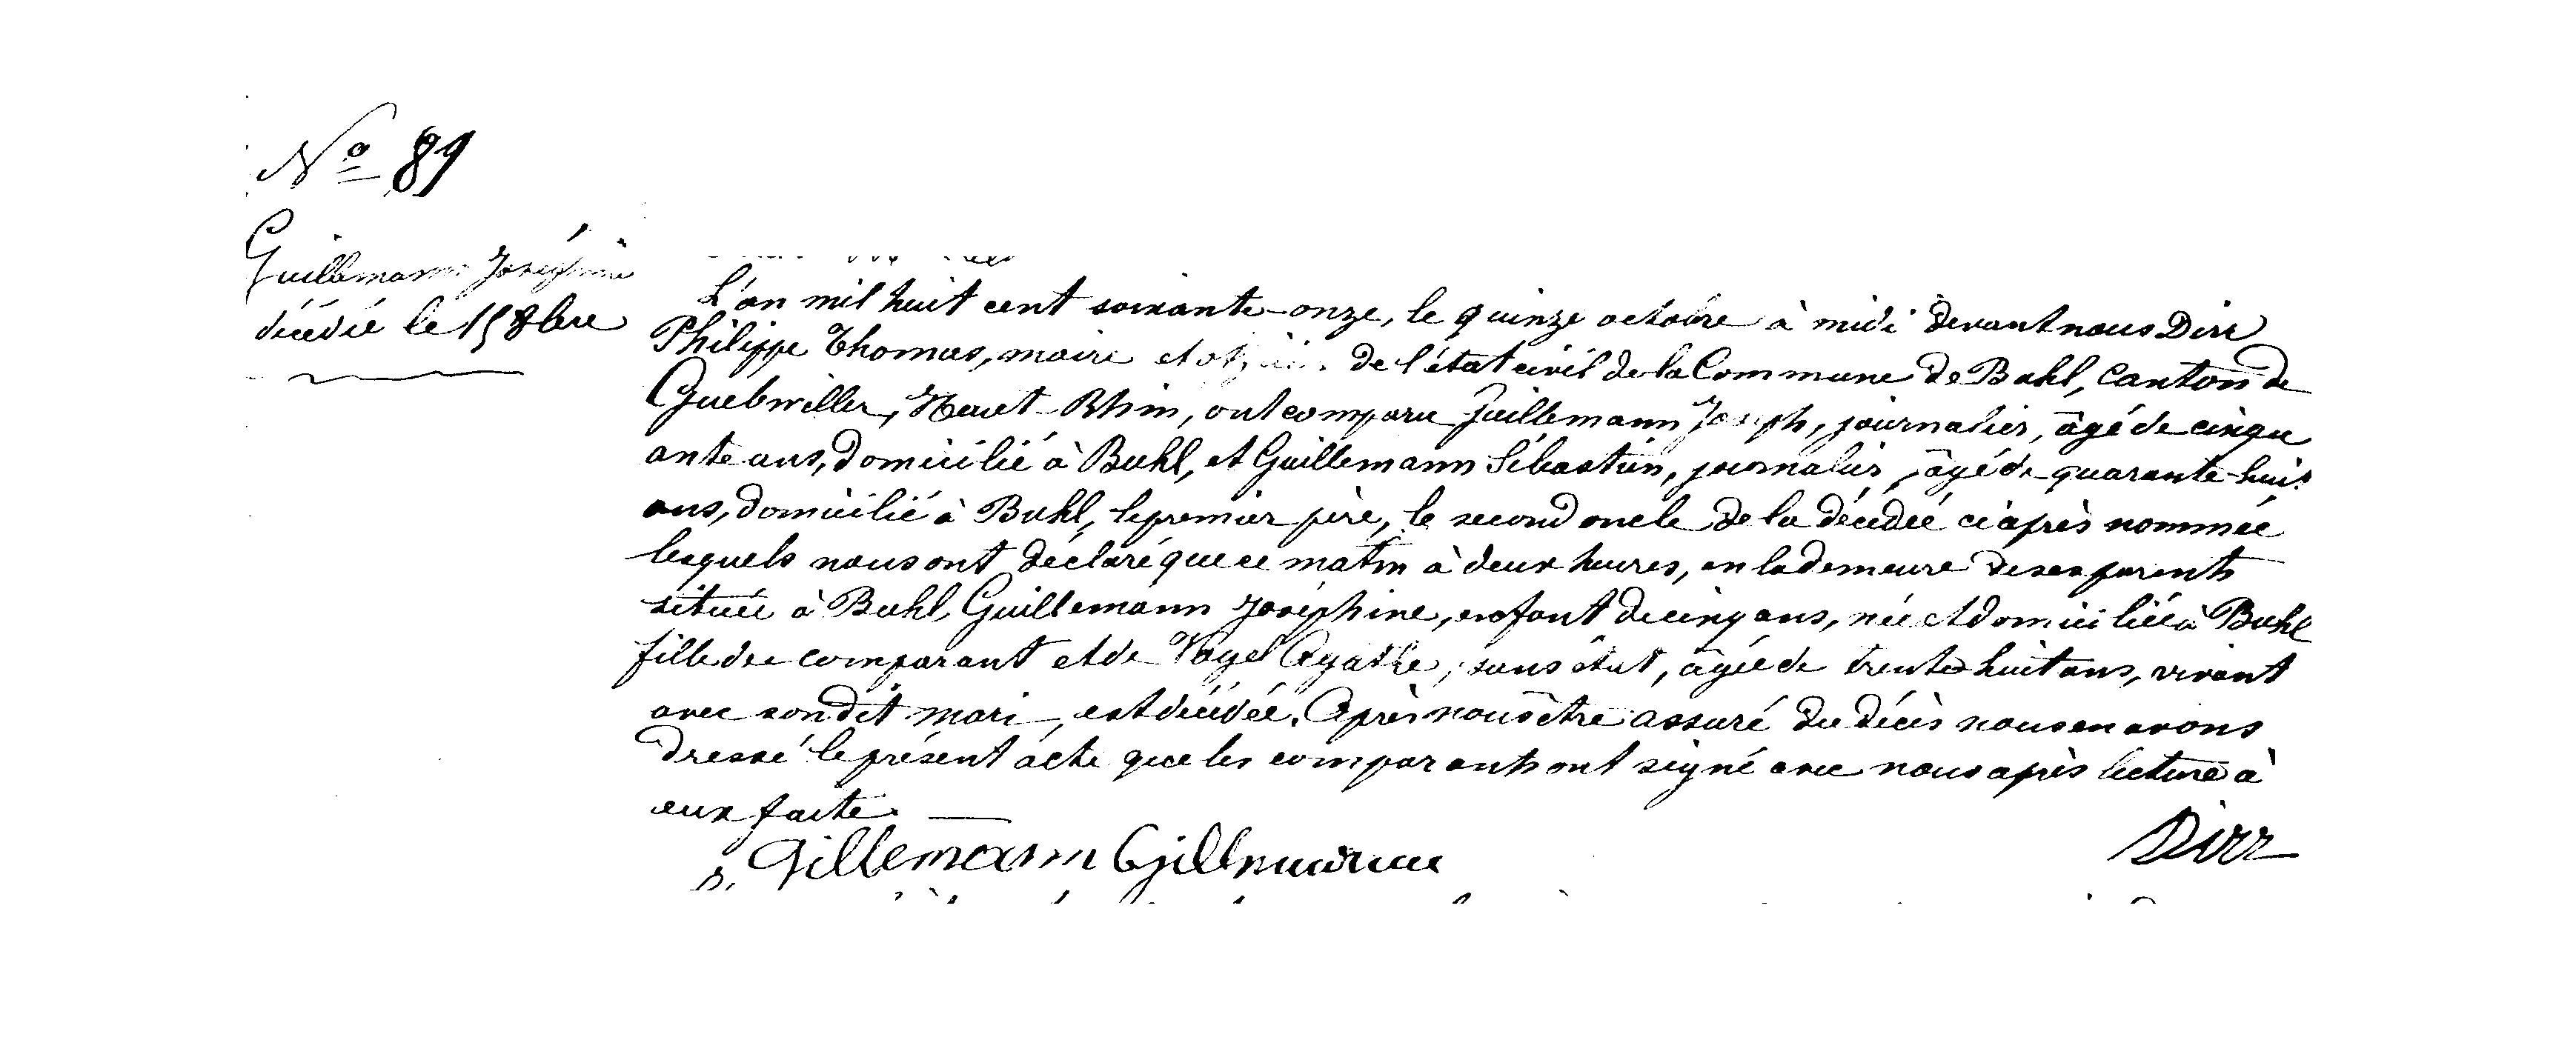 Nº 89
Guillemann Joséphine
décédée le 15 8bre
L'an mil huit cent soixante-onze, le quinze octobre à midi devant nous Dirr
Philippe Thomas, maire et officier de l'état civil de la Commune de Buhl, Canton de
Guebwiller, Haut-Rhin, ont comparu Guillemann Joseph, journalier, âgé de cinqu
ante ans, domicilié à Buhl, et Guillemann Sébastien, journalier, âgé de quarante-huit
ans, domicilié à Buhl, le premier père, le second oncle de la décédée ci après nommée
lesquels nous ont déclaré que ce matin à deux heures, en la demeure de ses parents
située à Buhl, Guillemann Joséphine, enfant de cinq ans, née et domiciliée à Buhl
fille du comparant et de Vogel Agathe, sans état, âgée de trente huit ans, vivant
avec son dit mari, est décédée. Après nous être assuré du décès nous en avons
dressé le présent acte que les comparants ont signé avec nous après lecture à
eux faite.
S. Gillemann Gillemann Dirr